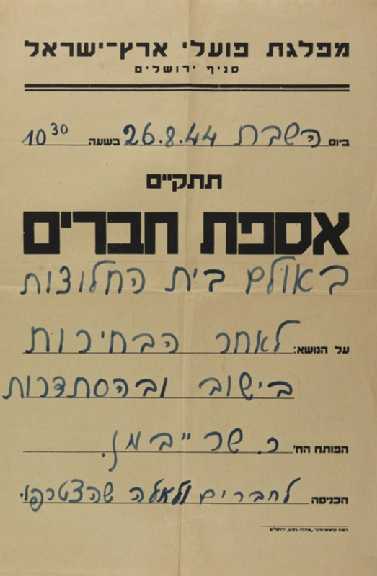 מפלגת פועלי ארץ־ישראל
סניף ירושלים
ביום השבת 26.8.44 בשעה 10³⁰
תתקיים
אספת חברים
באולם בית החלוצות
על הנושא: לאחר הבחירות
בישוב ובהסתדרות
הפותח הח׳
הכניסה לחברים ולאלה שהצטרפו.